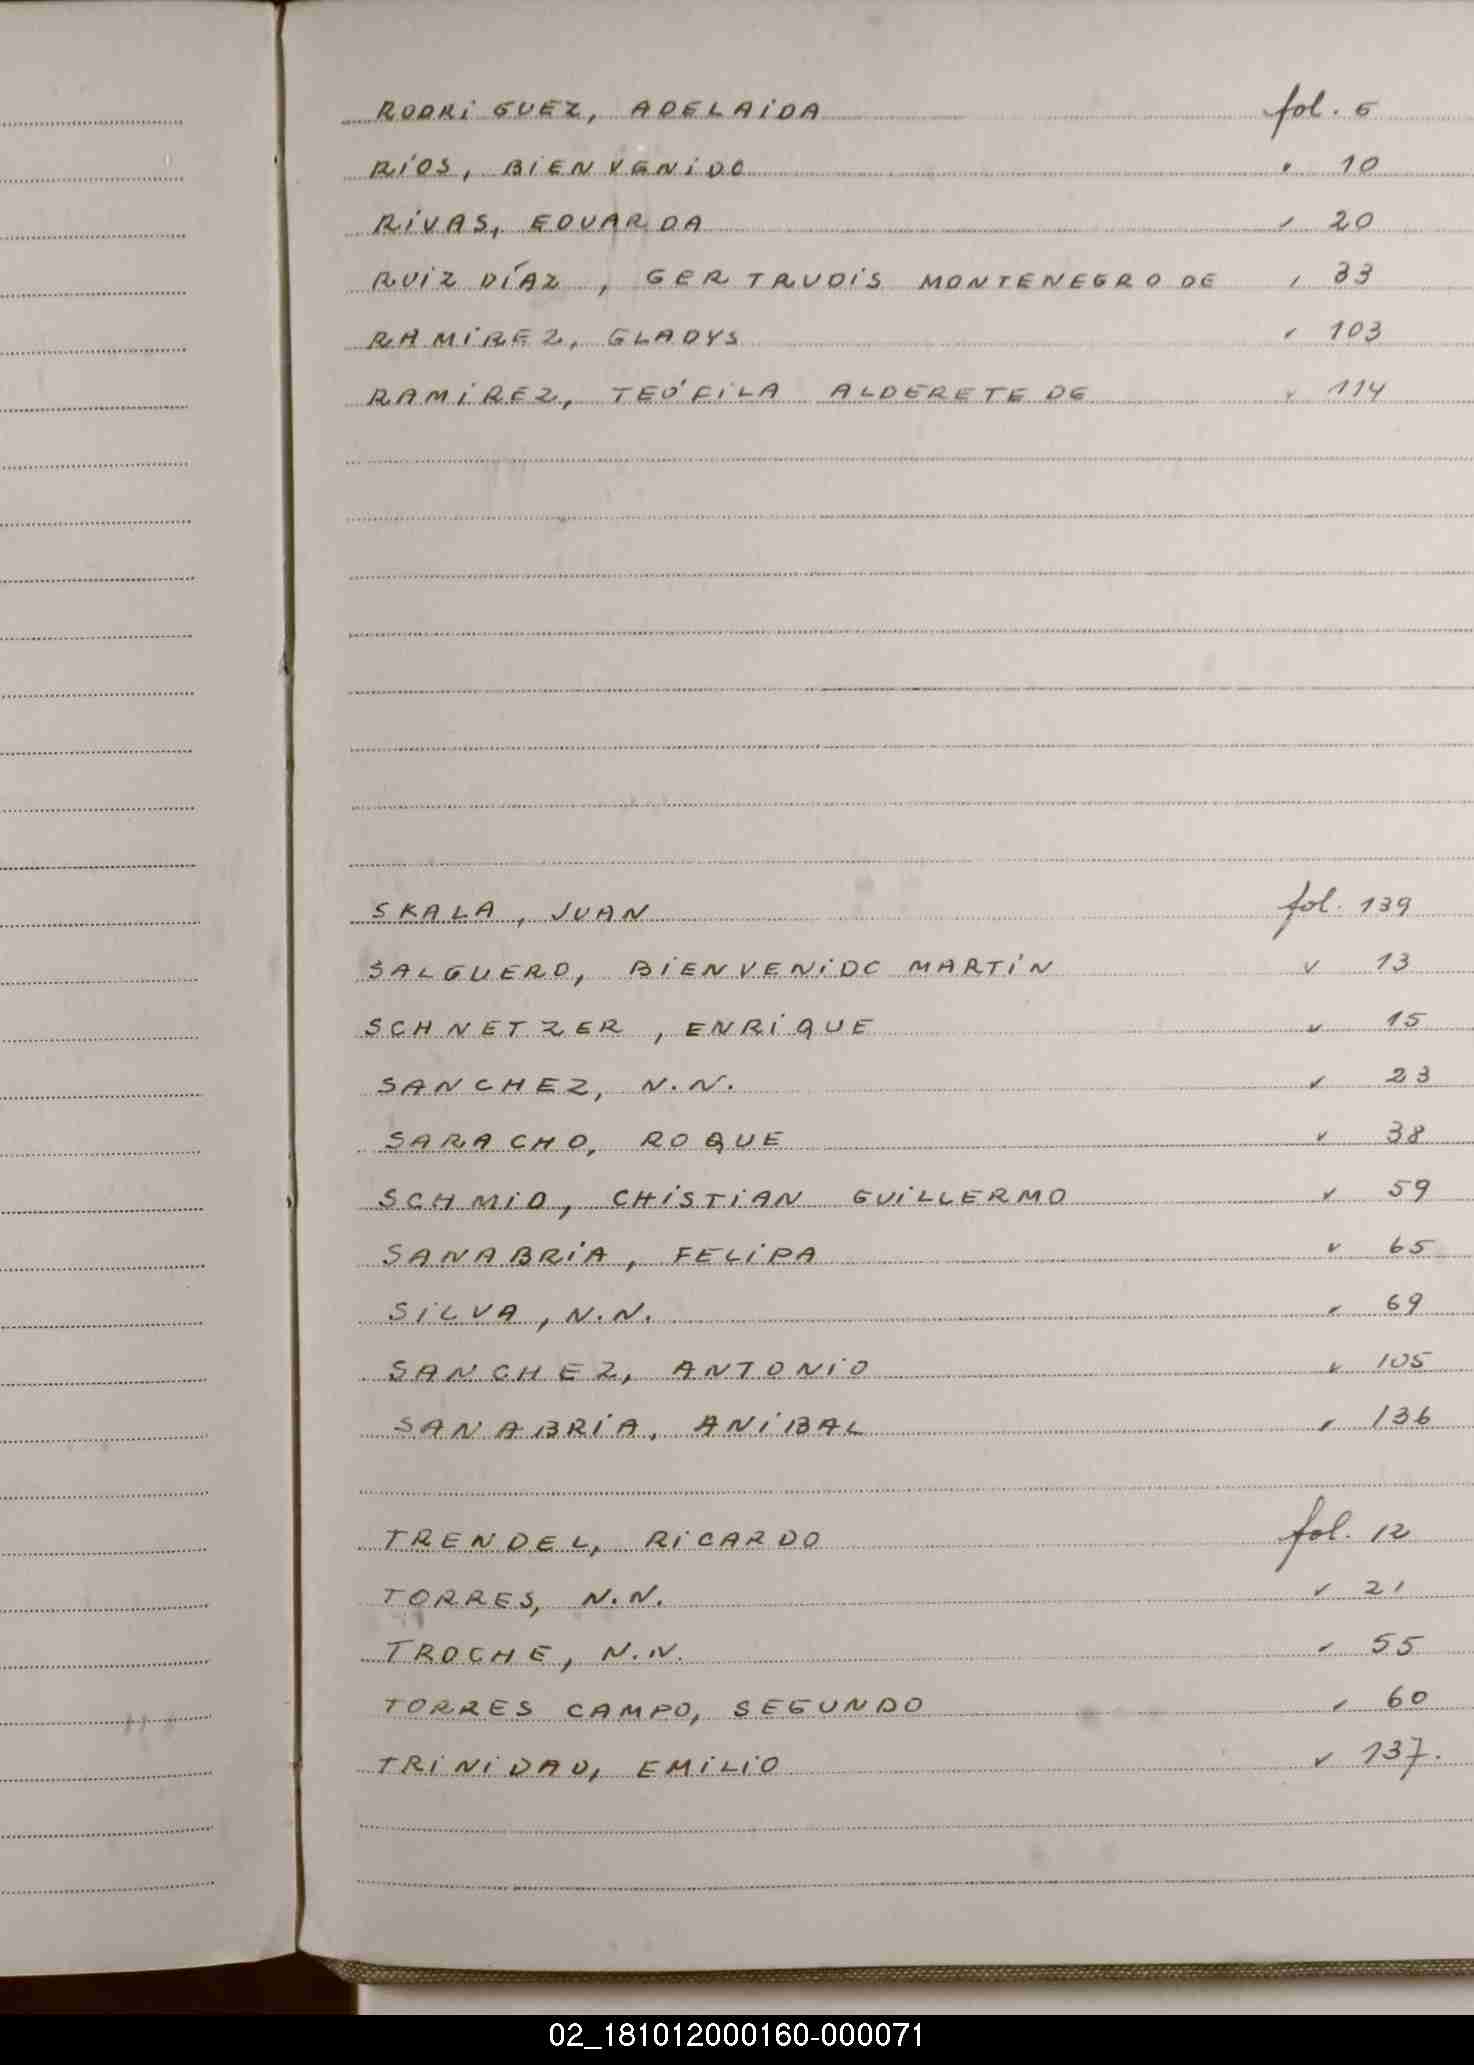 RODRIGUEZ, ADELAIDA fol. 6
RÍOS, BIENVENIDO " 10
RIVAS, EDUARDA " 20
RUIZ DÍAZ, GERTRUDIS MONTENEGRO DE " 33
RAMÍREZ, GLADYS " 103
RAMÍREZ, TEÓFILA ALDERETE DE " 114
SKALA, JUAN fol. 139
SALGUERO, BIENVENIDO MARTÍN " 13
SCHNETZER, ENRIQUE " 15
SANCHEZ, N.N. " 23
SARACHO, ROQUE " 38
SCHMID, CHISTIAN GUILLERMO " 59
SANABRIA, FELIPA " 65
SILVA, N.N. " 69
SANCHEZ, ANTONIO " 105
SANABRIA, ANIBAL " 136
TRENDEL, RICARDO fol. 12
TORRES, N.N. " 21
TROCHE, N.N. " 55
TORRES CAMPO, SEGUNDO " 60
TRINIDAD, EMILIO " 137.
02_181012000160-000071